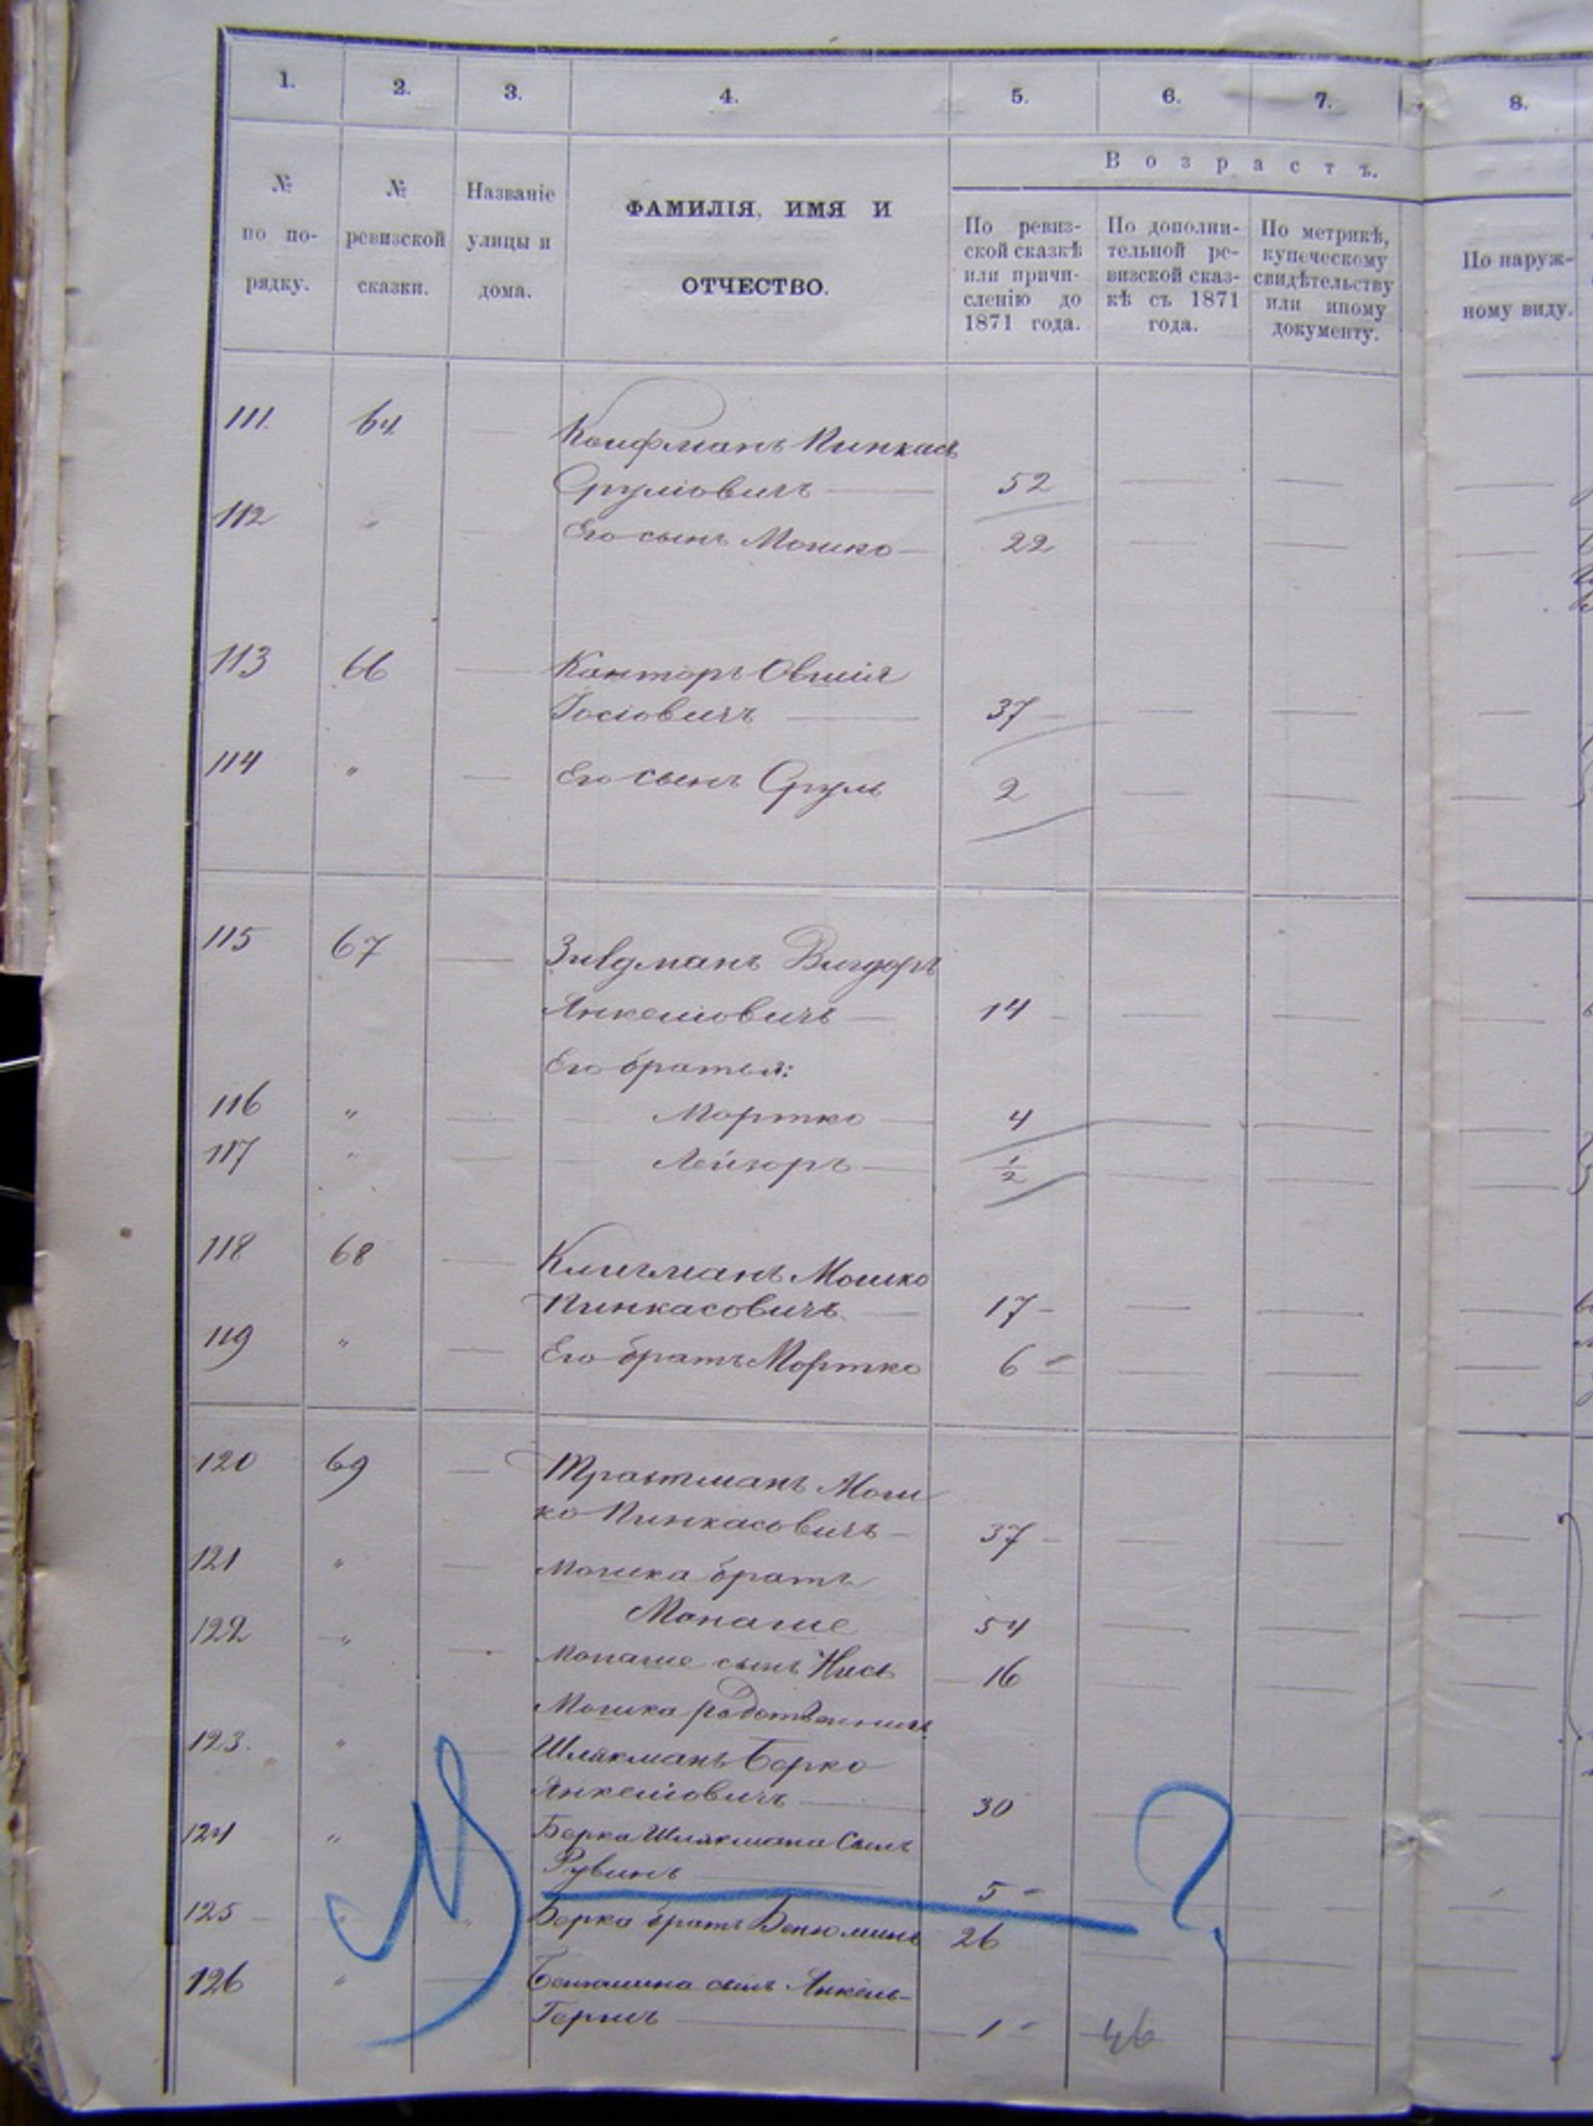 1. 2. 3. 4. 5. 6. 7. 8.
№ по по-рядку.
№ ревизской сказки.
Названіе улицы и дома.
ФАМИЛІЯ, ИМЯ И
ОТЧЕСТВО.
Возрастъ.
По ревиз-
ской сказкѣ
или причи-
сленію до
1871 года.
По дополни-
тельной ре-
визской сказ-
кѣ съ 1871
года.
По метрикѣ,
купеческому
свидѣтельству
или иному
документу.
По наруж-
ному виду.
111. 64 Кауфманъ Пинкасъ
Сруліовичъ 52
112 " Его сынъ Мошко 22
113 66 Канторъ Овшія
Іосіовичъ 37
114 " Его сынъ Сруль 2
115 67 Зивдманъ Вигдоръ
Янкеліовичъ 14
Его братья:
116 " Мортко 4
117 " Лейзоръ 1/2
118 68 Клигманъ Мошко
Пинкасовичъ. 17
119 " Его братъ Мортко 6
120 69 Трахтманъ Мош
ко Пинкасовичъ 37
121 " Мошка братъ
Монаше 54
122 " Монаше сынъ Нисъ 16
Мошка родственникъ
123. " Шлякманъ Берко
Янкеліовичъ 30
124 " Берка Шлякмана Сынъ
Рувинъ 5
125 " Берка братъ Бенюминъ 26
126 " Бенюмина сынъ Янкель-
Гершъ 1 46
?